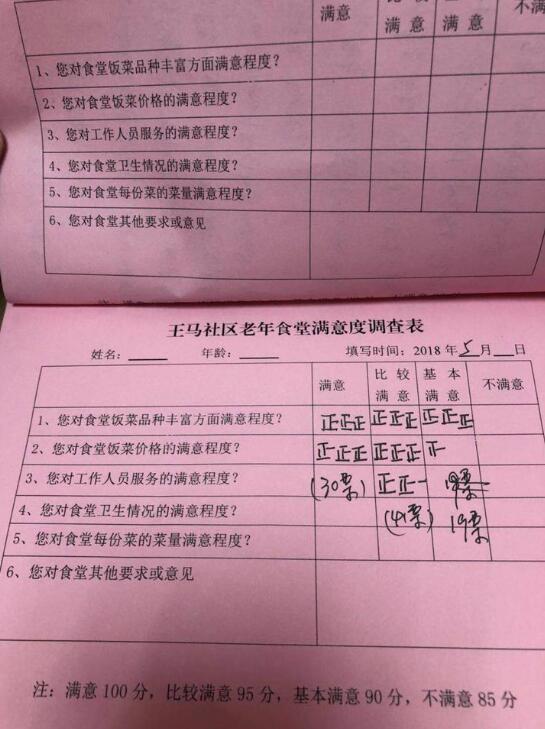 满意 比较满意 满意 不满
1、您对食堂饭菜品种丰富方面满意程度？
2、您对食堂饭菜价格的满意程度？
3、您对工作人员服务的满意程度？
4、您对食堂卫生情况的满意程度？
5、您对食堂每份菜的菜量满意程度？
6、您对食堂其他要求或意见
王马社区老年食堂满意度调查表
姓名：____ 年龄：____ 填写时间：2018 年 5 月__日
满意 比较满意 基本满意 不满意
1、您对食堂饭菜品种丰富方面满意程度？ 正正正 正正正 正正正
2、您对食堂饭菜价格的满意程度？ 正正正 正正正
3、您对工作人员服务的满意程度？ (30票) 正正一
4、您对食堂卫生情况的满意程度？ (41票) 19票
5、您对食堂每份菜的菜量满意程度？
6、您对食堂其他要求或意见
注：满意 100 分，比较满意 95 分，基本满意 90 分，不满意 85 分